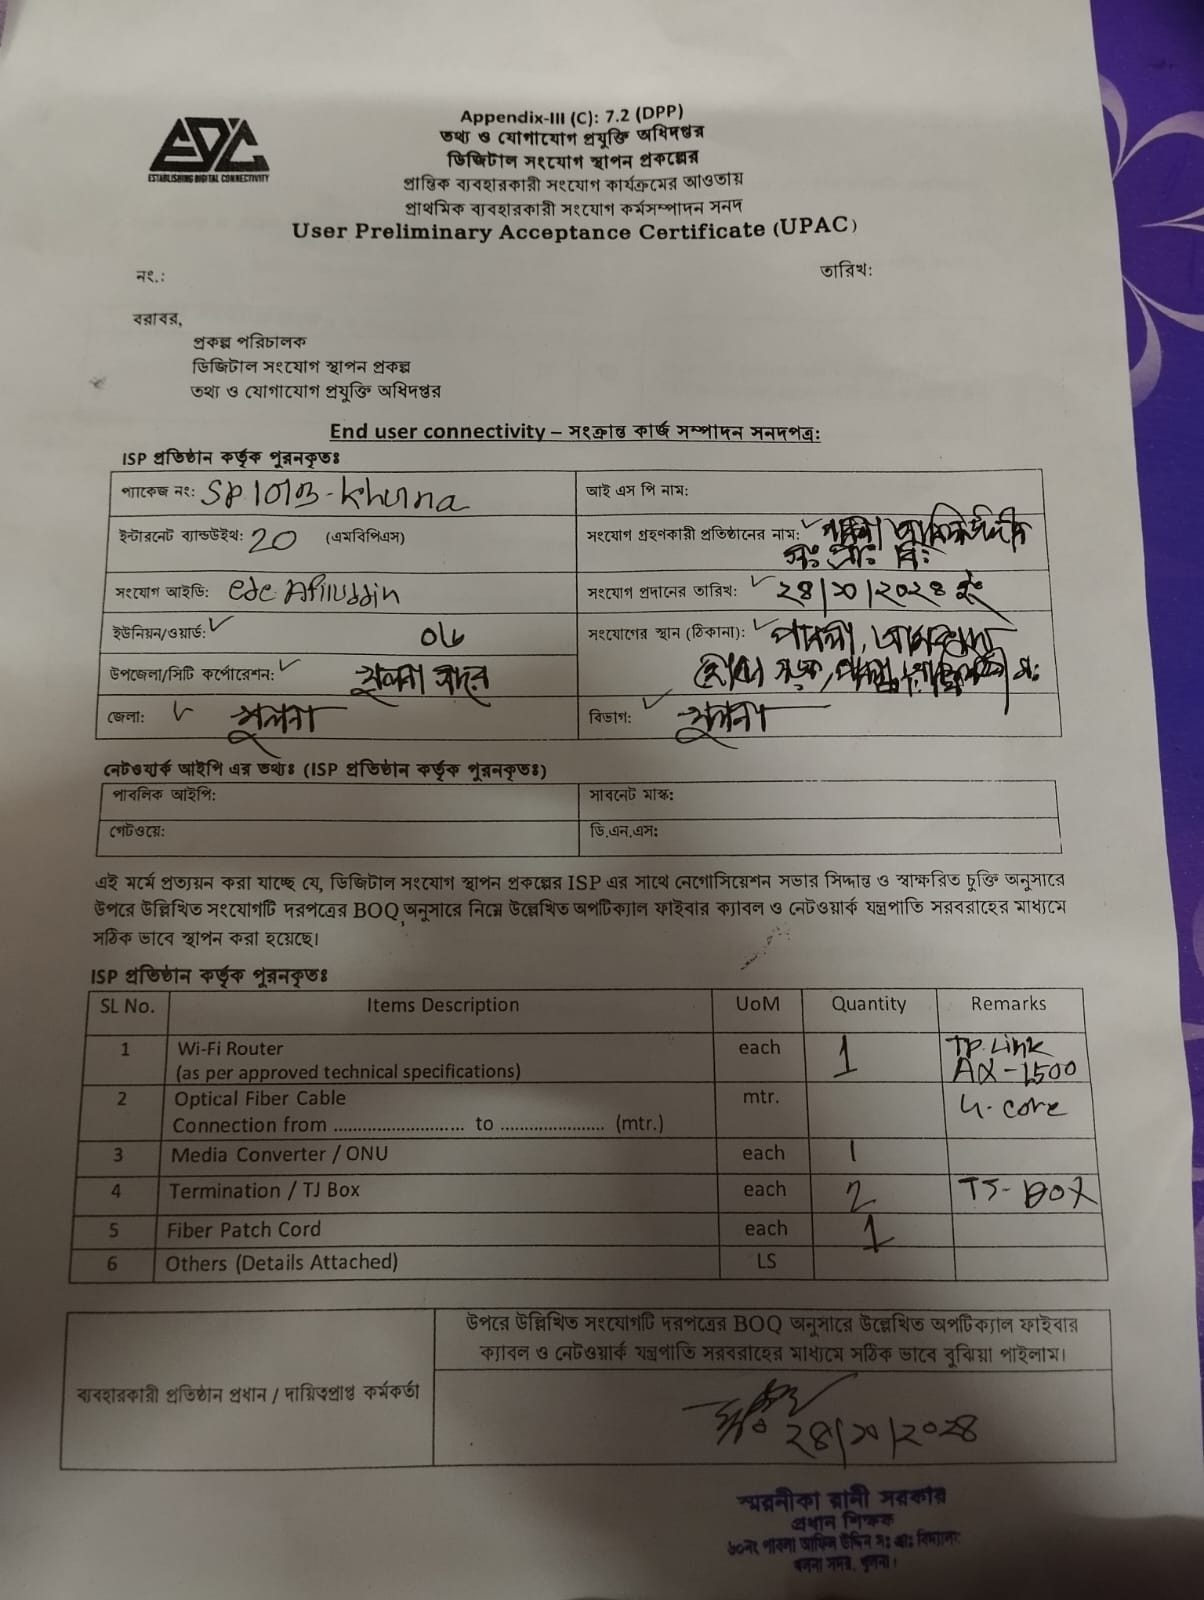 EDC
ESTABLISHING DIGITAL CONNECTIVITY
Appendix-III (C): 7.2 (DPP)
তথ্য ও যোগাযোগ প্রযুক্তি অধিদপ্তর
ডিজিটাল সংযোগ স্থাপন প্রকল্পের
প্রান্তিক ব্যবহারকারী সংযোগ কার্যক্রমের আওতায়
প্রাথমিক ব্যবহারকারী সংযোগ কর্মসম্পাদন সনদ
User Preliminary Acceptance Certificate (UPAC)
নং.:
তারিখ:
বরাবর,
প্রকল্প পরিচালক
ডিজিটাল সংযোগ স্থাপন প্রকল্প
তথ্য ও যোগাযোগ প্রযুক্তি অধিদপ্তর
End user connectivity – সংক্রান্ত কার্জ সম্পাদন সনদপত্র:
ISP প্রতিষ্ঠান কর্তৃক পুরনকৃতঃ
প্যাকেজ নং: SP 1013-Khulna
আই এস পি নাম:
ইন্টারনেট ব্যান্ডউইথ: 20 (এমবিপিএস)
সংযোগ গ্রহণকারী প্রতিষ্ঠানের নাম: পাবলা
সঃ প্রাঃ বিঃ
সংযোগ আইডি: edc.Afiluddin
সংযোগ প্রদানের তারিখ: ২৪/১০/২০২৪ ইং
ইউনিয়ন/ওয়ার্ড: ০৬
সংযোগের স্থান (ঠিকানা): পাবলা,
উপজেলা/সিটি কর্পোরেশন: খুলনা সদর
সড়ক,
জেলা: খুলনা
বিভাগ: খুলনা
নেটওয়ার্ক আইপি এর তথ্যঃ (ISP প্রতিষ্ঠান কর্তৃক পুরনকৃতঃ)
পাবলিক আইপি:
সাবনেট মাস্ক:
গেটওয়ে:
ডি.এন.এস:
এই মর্মে প্রত্যয়ন করা যাচ্ছে যে, ডিজিটাল সংযোগ স্থাপন প্রকল্পের ISP এর সাথে নেগোসিয়েশন সভার সিদ্দান্ত ও স্বাক্ষরিত চুক্তি অনুসারে
উপরে উল্লিখিত সংযোগটি দরপত্রের BOQ অনুসারে নিম্নে উল্লেখিত অপটিক্যাল ফাইবার ক্যাবল ও নেটওয়ার্ক যন্ত্রপাতি সরবরাহের মাধ্যমে
সঠিক ভাবে স্থাপন করা হয়েছে।
ISP প্রতিষ্ঠান কর্তৃক পুরনকৃতঃ
SL No. Items Description UoM Quantity Remarks
1 Wi-Fi Router each 1 TP.Link
(as per approved technical specifications) AX-1500
2 Optical Fiber Cable mtr. 4-core
Connection from ............................ to ...................... (mtr.)
3 Media Converter / ONU each 1
4 Termination / TJ Box each 2 TJ-BOX
5 Fiber Patch Cord each 1
6 Others (Details Attached) LS
উপরে উল্লিখিত সংযোগটি দরপত্রের BOQ অনুসারে উল্লেখিত অপটিক্যাল ফাইবার
ক্যাবল ও নেটওয়ার্ক যন্ত্রপাতি সরবরাহের মাধ্যমে সঠিক ভাবে বুঝিয়া পাইলাম।
ব্যবহারকারী প্রতিষ্ঠান প্রধান / দায়িত্বপ্রাপ্ত কর্মকর্তা
২৪/১০/২০২৪
স্মরনীকা রানী সরকার
প্রধান শিক্ষক
৬০নং পাবলা আফিল উদ্দিন সঃ প্রাঃ বিদ্যালয়
খুলনা সদর, খুলনা।